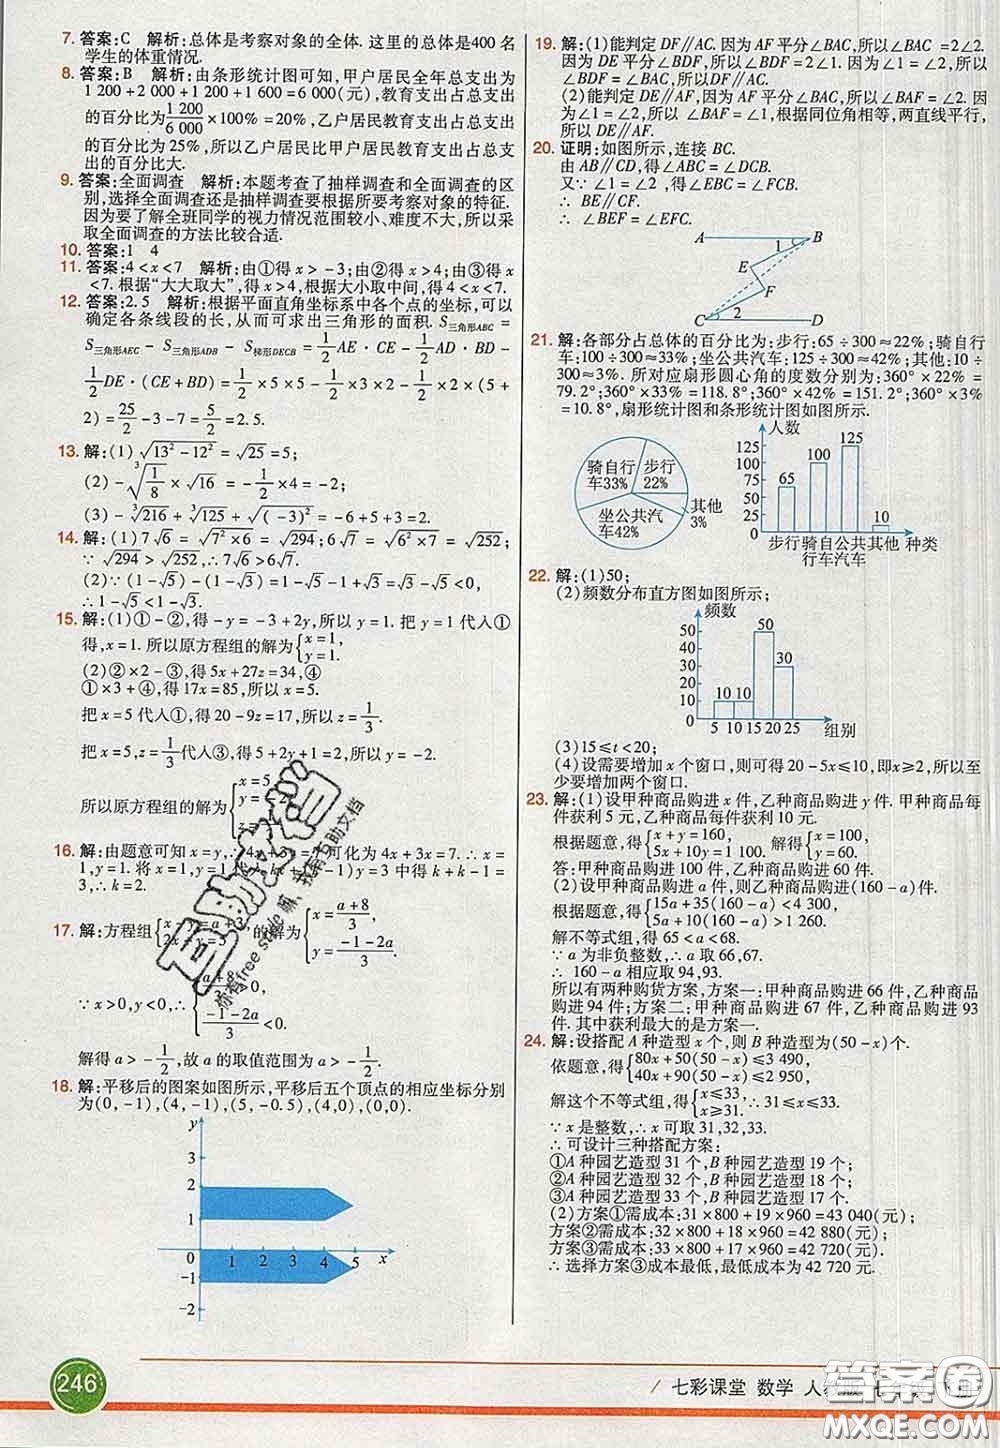 7. 答案:C 解析:总体是考察对象的全体. 这里的总体是400 名
学生的体重情况.
8. 答案:B 解析:由条形统计图可知,甲户居民全年总支出为
1 200+2 000+1 200+1 600=6 000(元),教育支出占总支出
的百分比为1 200/6 000×100%=20%,乙户居民教育支出占总支出
的百分比为25%,所以乙户居民比甲户居民教育支出占总支
出的百分比大.
9. 答案:全面调查 解析:本题考查了抽样调查和全面调查的区
别,选择全面调查还是抽样调查要根据所要考察对象的特征.
因为要了解全班同学的视力情况范围较小、难度不大,所以采
取全面调查的方法比较合适.
10. 答案:1 4
11. 答案:4<x<7 解析:由①得 x>-3;由②得 x>4;由③得 x
<7. 根据“大大取大”,得 x>4,根据大小取中间,得 4<x<7.
12. 答案:2.5 解析:根据平面直角坐标系中各个点的坐标,可以
确定各条线段的长,从而可求出三角形的面积. S三角形ABC=
S三角形AEC-S三角形ADB-S梯形DECB=1/2AE·CE-1/2AD·BD-
1/2DE·(CE+BD)=1/2×5×5-1/2×3×2-1/2×2×(5+
2)=25/2-3-7=5/2=2.5.
13. 解:(1)√(13²-12²)=√25=5;
(2)-∛(1/8)×√16=-1/2×4=-2;
(3)-∛216+∛125+√(-3)²=-6+5+3=2.
14. 解:(1)7√6=√(7²×6)=√294;6√7=√(6²×7)=√252;
∵√294>√252,∴7√6>6√7;
(2)∵(1-√5)-(1-√3)=1-√5-1+√3=√3-√5<0,
∴1-√5<1-√3.
15. 解:(1)①-②,得-y=-3+2y,所以 y=1. 把 y=1 代入①
得,x=1. 所以原方程组的解为{x=1, y=1.
(2)②×2-③,得 5x+27z=34,④
①×3+④,得 17x=85,所以 x=5.
把 x=5 代人①,得 20-9z=17,所以 z=1/3.
把 x=5,z=1/3代人③,得 5+2y+1=2,所以 y=-2.
所以原方程组的解为
16. 解:由题意可知 x=y,∴4x+3y=7 可化为 4x+3x=7. ∴x=
1,y=1. 将 x=1,y=1 ... )y=3 中得 k+k-1=
3,∴k=2.
17. 解:方程组{x-y=a+3, 2x+y=5a 的解为{x=(a+8)/3, y=(-1-2a)/3.
∵x>0,y<0,∴{(a+8)/3>0, (-1-2a)/3<0.
解得 a>-1/2,故 a 的取值范围为 a>-1/2.
18. 解:平移后的图案如图所示,平移后五个顶点的相应坐标分别
为(0,-1),(4,-1),(5,-0.5),(4,0),(0,0).
y
3
2
1
0 1 2 3 4 5 x
-1
-2
246
19. 解:(1)能判定 DF∥AC. 因为 AF 平分∠BAC,所以∠BAC=2∠2.
因为 DE 平分∠BDF,所以∠BDF=2∠1,又因为∠1=∠2,所
以∠BDF=∠BAC,所以 DF∥AC.
(2)能判定 DE∥AF,因为∠BDF=∠BAC,所以∠BAF=∠2. 因
为∠1=∠2,所以∠BAF=∠1,根据同位角相等,两直线平行,
所以 DE∥AF.
20. 证明:如图所示,连接 BC.
由 AB∥CD,得∠ABC=∠DCB.
又∵∠1=∠2,得∠EBC=∠FCB.
∴BE∥CF.
∴∠BEF=∠EFC.
A 1 B
E
F
C 2 D
21. 解:各部分占总体的百分比为:步行:65÷300≈22%;骑自行
车:100÷300≈33%;坐公共汽车:125÷300≈42%;其他:10÷
300≈3%. 所对应扇形圆心角的度数分别为:360°×22%=
79.2°;360°×33%=118.8°;360°×42%=151.2°;360°×3%
=10.8°,扇形统计图和条形统计图如图所示.
骑自行车33% 步行22%
坐公共汽车42% 其他3%
人数
125
100
75
50
25
0
65 100 125 10
步行骑自公共其他 种类
行车汽车
22. 解:(1)50;
(2)频数分布直方图如图所示;
频数
50
40
30
20
10
0
10 10 50 30
5 10 15 20 25 组别
(3)15≤t<20;
(4)设需要增加 x 个窗口,则可得 20-5x≤10,即x≥2,所以至
少要增加两个窗口.
23. 解:(1)设甲种商品购进 x 件,乙种商品购进 y 件. 甲种商品每
件获利 5 元,乙种商品每件获利 10 元.
根据题意,得{x+y=160, 5x+10y=1 100. 解得{x=100, y=60.
答:甲种商品购进 100 件,乙种商品购进 60 件.
(2)设甲种商品购进 a 件,则乙种商品购进(160-a)件.
根据题意,得{15a+35(160-a)<4 300, 5a+10(160-a)>1 260.
解不等式组,得 65<a<68.
∵a 为非负整数,∴a 取 66,67.
∴160-a 相应取 94,93.
所以有两种购货方案,方案一:甲种商品购进 66 件,乙种商品
购进 94 件;方案二:甲种商品购进 67 件,乙种商品购进 93
件. 其中获利最大的是方案一.
24. 解:设搭配 A 种造型 x 个,则 B 种造型为(50-x)个.
依题意,得{80x+50(50-x)≤3 490, 40x+90(50-x)≤2 950.
解这个不等式组,得{x≤33, x≥31. ∴31≤x≤33.
∵x 是整数,∴x 可取 31,32,33.
∴可设计三种搭配方案:
①A 种园艺造型 31 个,B 种园艺造型 19 个;
②A 种园艺造型 32 个,B 种园艺造型 18 个;
③A 种园艺造型 33 个,B 种园艺造型 17 个.
(2)方案①需成本:31×800+19×960=43 040(元);
方案②需成本:32×800+18×960=42 880(元);
方案③需成本:33×800+17×960=42 720(元).
∴选择方案③成本最低,最低成本为 42 720 元.
七彩课堂 数学 人
答案圈
MXQE.COM